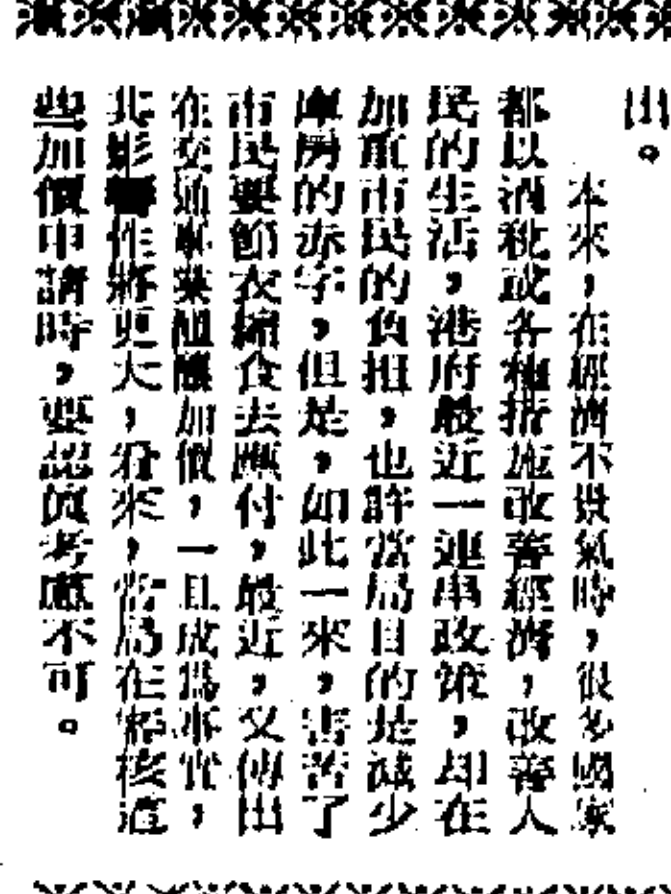 出。
本來，在經濟不景氣時，很多國家
都以酒稅或各種措施改善經濟，改善人
民的生活，港府最近一連串政策，却在
加重市民的負担，也許當局目的是減少
庫房的赤字，但是，如此一來，害苦了
市民要節衣縮食去應付，最近，又傳出
在交通事業醞釀加價，一旦成爲事實，
其影響性將更大，看來，當局在審核這
些加價申請時，要認真考慮不可。